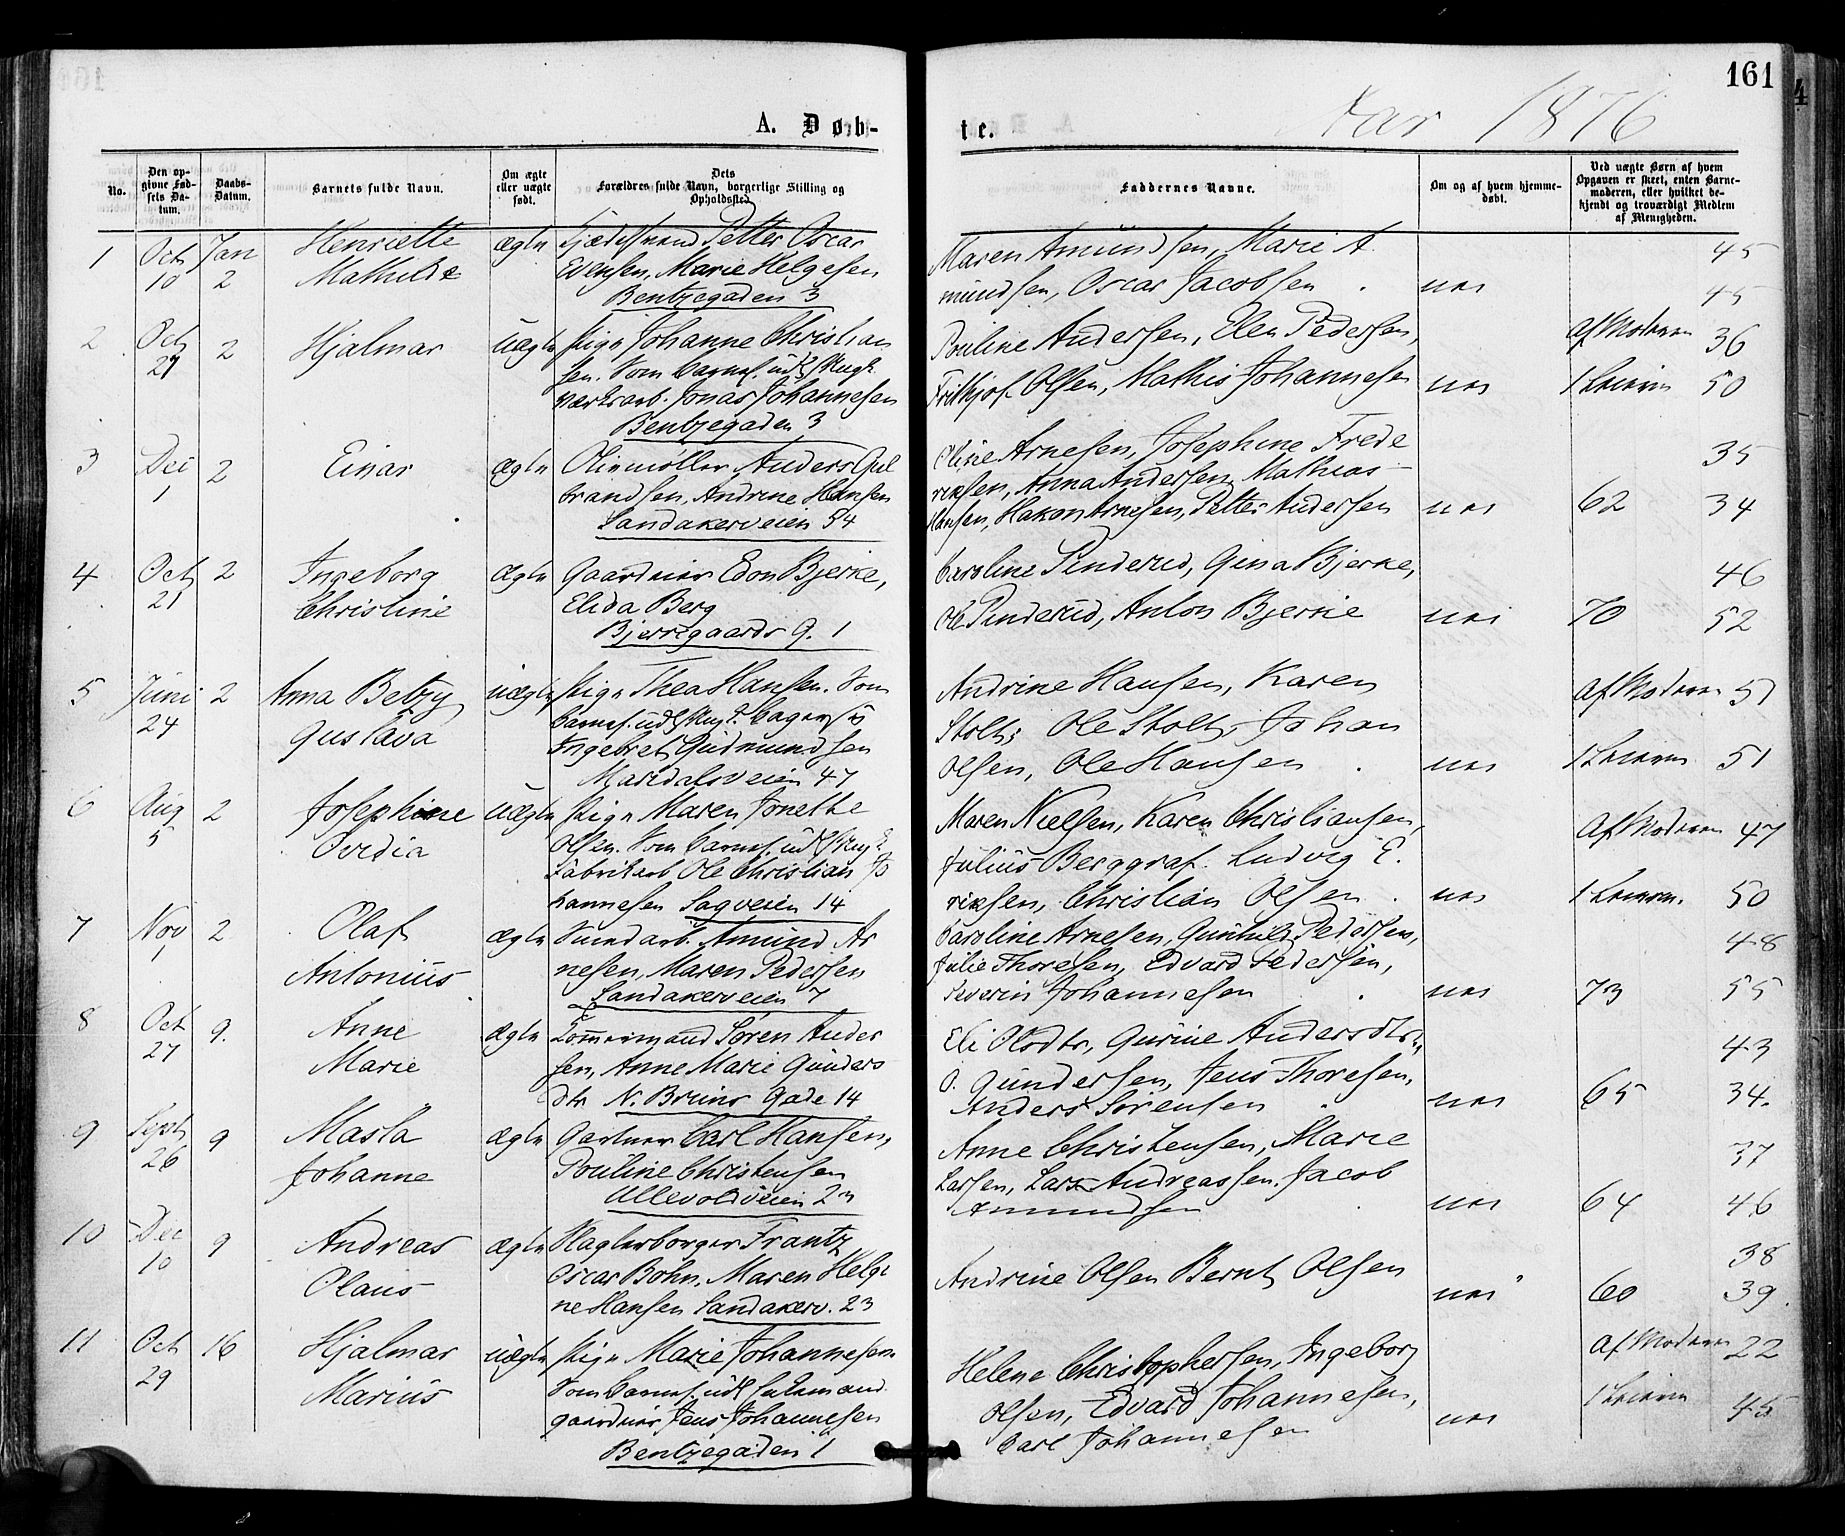 161
A. Døb-
te.
Aar 1876
No.
Den op-
givne Fød-
sels Da-
tum.
Daabs-
Datum.
Barnets fulde Navn.
Om ægte
eller uægte
født.
Dets
Forældres fulde Navn, borgerlige Stilling og
Opholdssted.
Faddernes Navne.
Om og af hvem hjemme-
døbt.
Ved uægte Børn af hvem
Opgaven er skeet, enten Barne-
moderen, eller hvilket be-
kjendt og troværdigt Medlem
af Menigheden.
1
Oct
10
Jan
2
Henriette
Mathilde
ægte
Petter Oscar
Evensen, Marie Helgesen
Bentzegaden 3
Maren Amundsen, Marie A.
mundsen, Oscar Jacobsen
nei
45
45
2
Oct
27
2
Hjalmar
uægte
Pige Johanne Christian
sen. Som Barnef. udl. Ungk.
Værksarb. Jonas Johannesen
Bentzegaden 3
Pouline Andersen, Elen Pedersen,
Frithjof Olsen, Mathis Johannesen
nei
Af Moderen
1 Leierm
36
50
3
Dec
1
2
Einar
ægte
Oliemøller Anders Gul
brandsen, Andrine Hansen
Sandakerveien 54
Oline Arnesen, Josephine Frede
riksen, Anna Andersen, Mathias
Hansen, Hakon Arnesen, Petter Andersen
nei
62
35
34
4
Oct
21
2
Ingeborg
Christine
ægte
Gaardeier Edon Bjerke,
Elida Berg
Bjerregaards G. 1
Caroline Pinderud, Gina Bjerke,
Ole Pinderud, Anton Bjerke
nei
70
46
52
5
Juni
24
2
Anna Betzy
Gustava
uægte
Pige Thea Hansen. Som
Barnef. udl. Ungk. Bagersv
Ingebret Gudmundsen
Maridalsveien 47
Andrine Hansen, Karen
Stolt, Ole Stolt, Johan
Olsen, Ole Hansen
nei
Af Moderen
1 Leierm.
51
51
6
Aug
5
2
Josephine
Ovidia
uægte
Pige Maren Jonette
Olsen. Som Barnef. udl. Ungk.
Fabrikarb Ole Christian Jo
hannesen Sagveien 14
Maren Nielsen, Karen Christiansen,
Julius Berggraf. Ludvig E.
riksen, Christian Olsen
nei
Af Moderen
1 Leierm.
47
50
7
Nov
1
2
Olaf
Antonius
ægte
Amund Ar
nesen, Maren Pedersen
Sandakerveien 7
Caroline Arnesen, Gunhild Pedersen,
Julie Thoresen, Edvard Pedersen,
Severin Johannesen
nei
73
48
55
8
Oct
27
9.
Anne
Marie
ægte
Tømmermand Søren Ander
sen, Anne Marie Gunders
dtr N. Bruns Gade 14
Eli Olsdtr, Gurine Andersdtr,
O. Gundersen, Jens Thoresen,
Anders Sørensen
nei
65
43
34.
9
Sept
26
9
Masla
Johanne
ægte
Gartner Carl Hansen,
Pouline Christensen
Ullevoldveien 23
Anne Christensen, Marie
Larsen, Lars Andreassen. Jacob
Amundsen
nei
64
37
46
10
Dec
10
9
Andreas
Olaus
ægte
Frantz
Oscar Bohn, Maren Helge
ne Hansen Sandakerv. 23
Andrine Olsen Bernt Olsen
nei
60
38
39.
11
Oct
29
16
Hjalmar
Marius
uægte
Pige Marie Johannesen
Som Barnef. udl. Enkemand
gaardeier Jens Johannesen
Bentzegaden 1
Helene Christophersen, Ingeborg
Olsen, Edvard Johannesen,
Carl Johannesen
nei
Af Moderen
1 Leierm
22
45